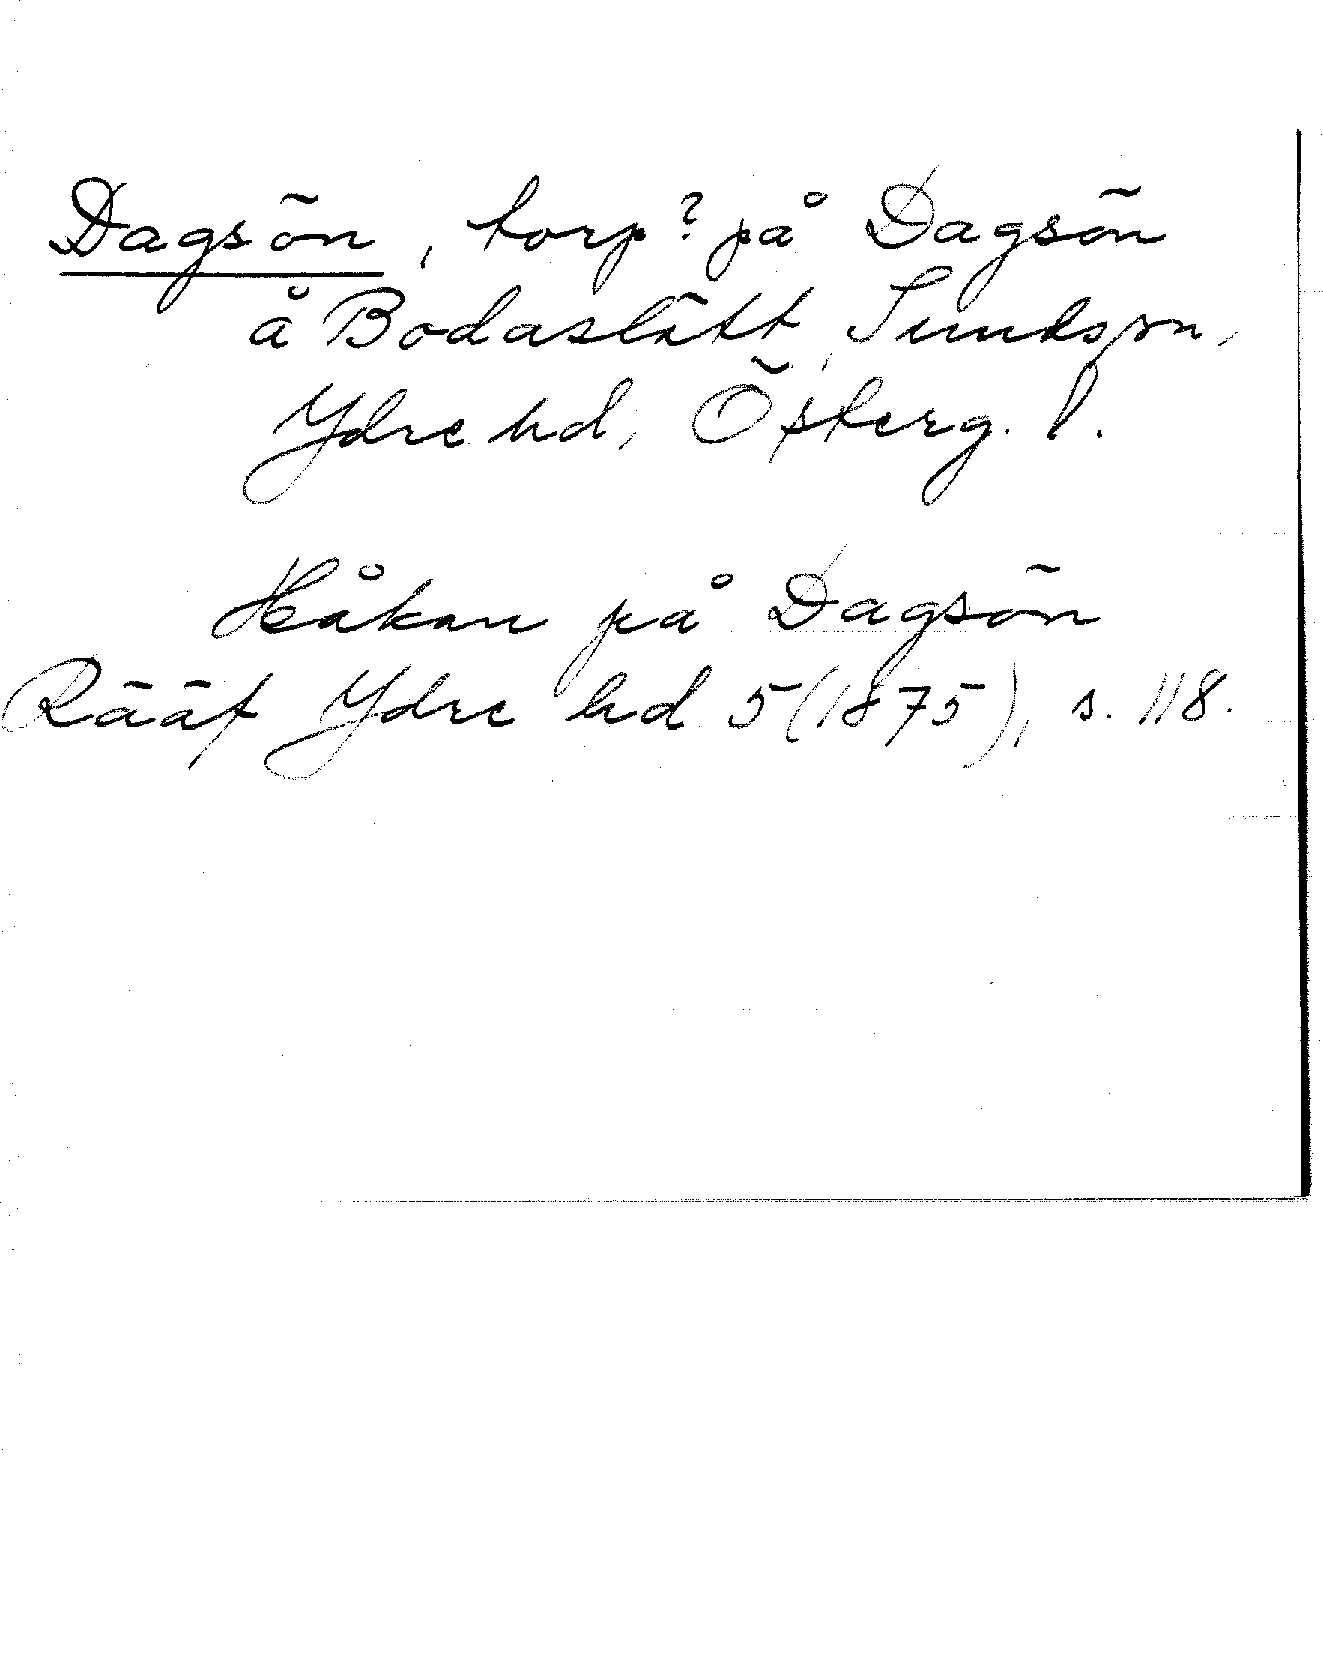 Dagsön, torp? på Dagsön
å Bodaslätt, Sunds sn,
Ydre hd, Österg. l.
Håkan på Dagsön
Rääf Ydre hd 5 (1875), s. 118.